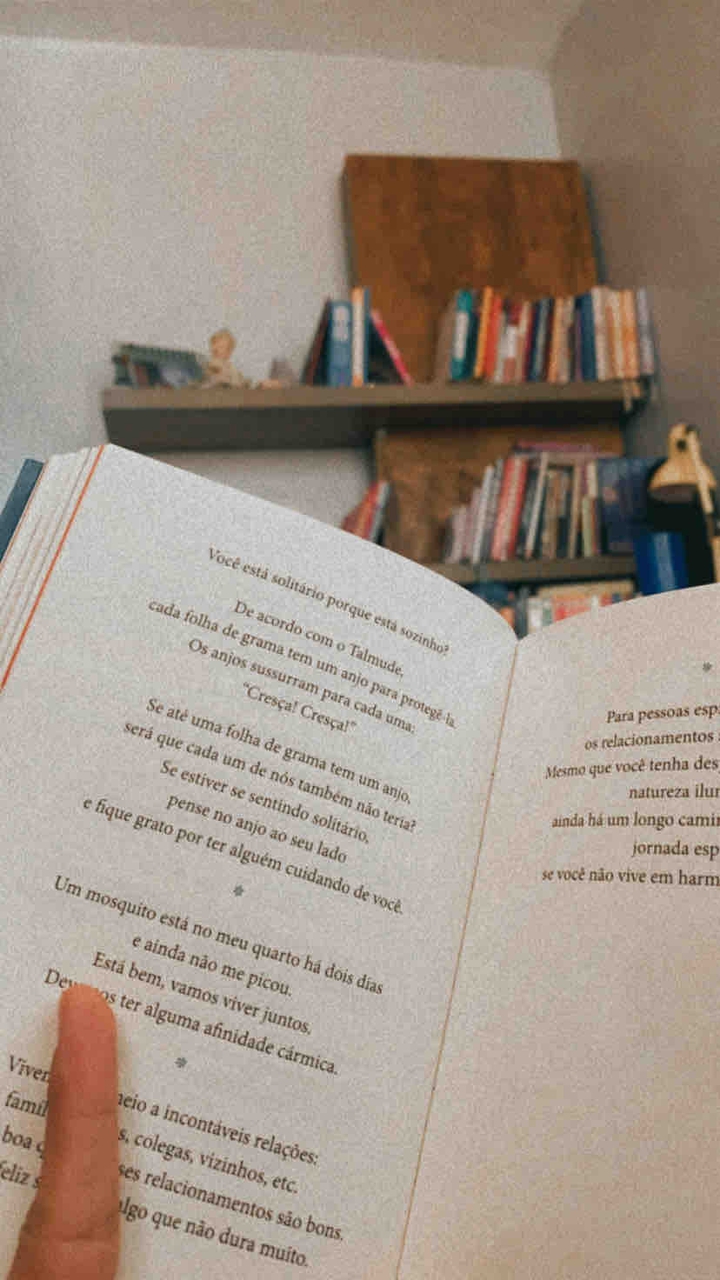 Você está solitário porque está sozinho?
De acordo com o Talmude,
cada folha de grama tem um anjo para protegê-la.
Os anjos sussurram para cada uma:
"Cresça! Cresça!"
Se até uma folha de grama tem um anjo,
será que cada um de nós também não teria?
Se estiver se sentindo solitário,
pense no anjo ao seu lado
e fique grato por ter alguém cuidando de você.
*
Um mosquito está no meu quarto há dois dias
e ainda não me picou.
Está bem, vamos viver juntos.
ter alguma afinidade cármica.
*
a incontáveis relações:
colegas, vizinhos, etc.
boa
feliz
relacionamentos são bons.
que não dura muito.
*
Para pessoas
os relacionamentos
Mesmo que você tenha
natureza
ainda há um longo
jornada
se você não vive em